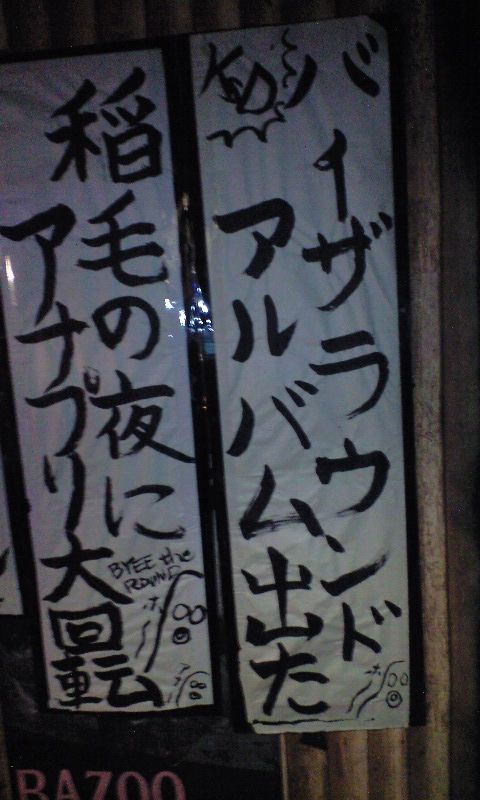 バイザラウンド
アルバム出た
稲毛の夜に
アナプリ大回転
BYEE the
ROUND
BAZOO